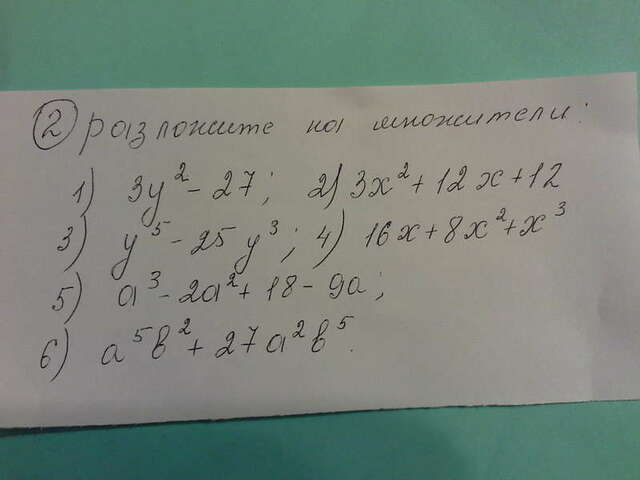 ② разложите на множители:
1) 3y² - 27; 2) 3x² + 12x + 12
3) y⁵ - 25y³; 4) 16x + 8x² + x³
5) a³ - 2a² + 18 - 9a;
6) a⁵b² + 27a²b⁵.